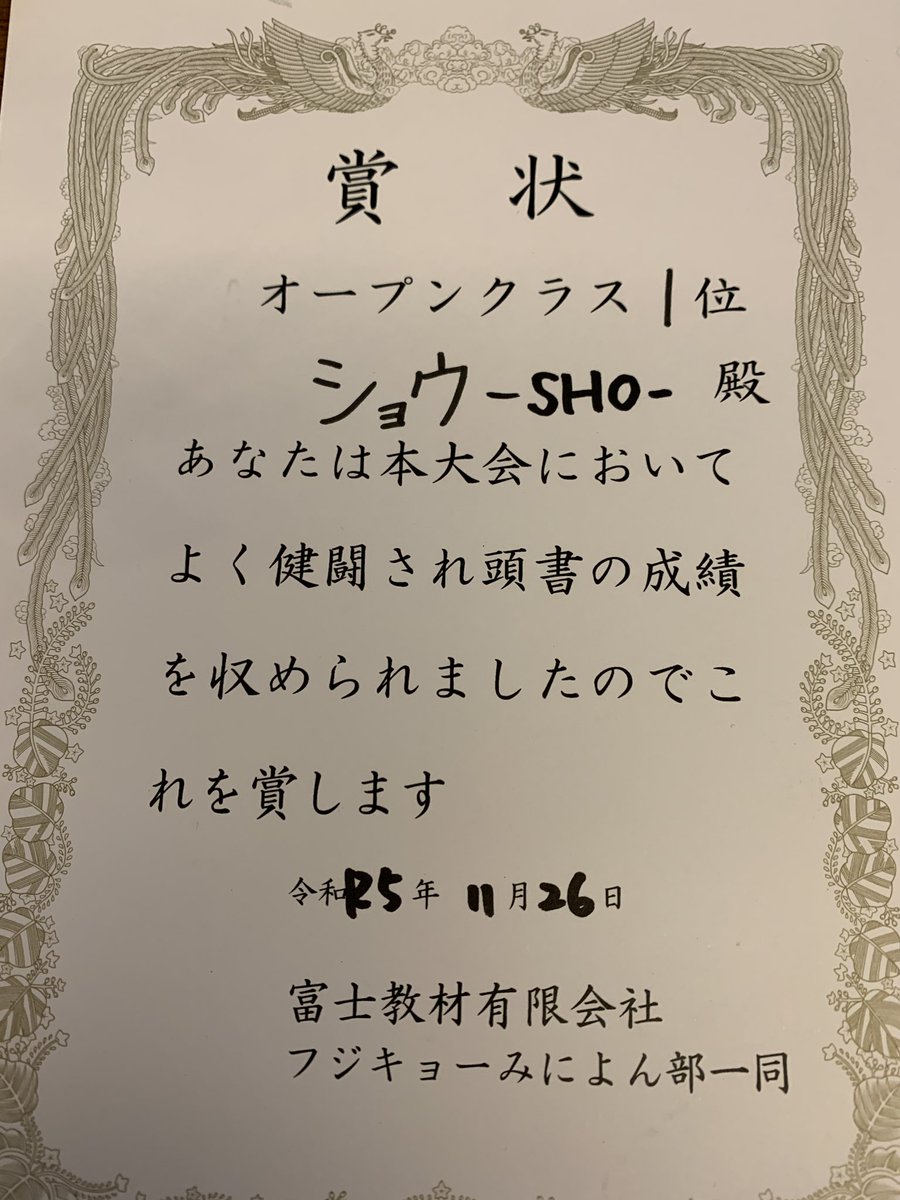 賞状
オープンクラス1位
ショウ-SHO- 殿
あなたは本大会において
よく健闘され頭書の成績
を収められましたのでこ
れを賞します
令和R5年 11月26日
富士教材有限会社
フジキョーみによん部一同